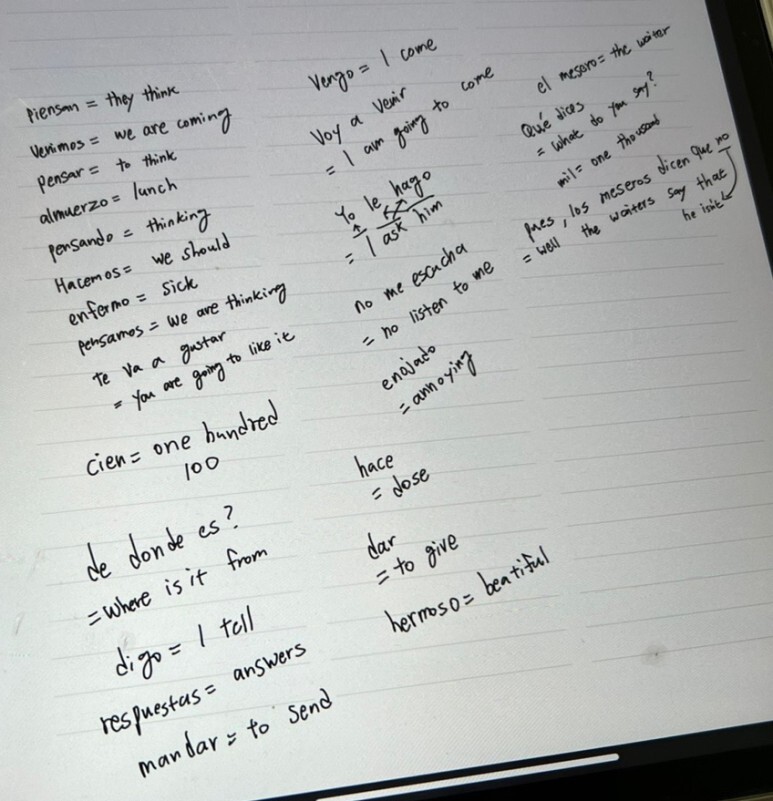 piensan = they think
Venimos = we are coming
pensar = to think
almuerzo = lunch
pensando = thinking
Hacemos = we should
enfermo = sick
pensamos = we are thinking
te va a gustar
= You are going to like it
cien = one hundred
100
de donde es?
= where is it from
digo = I tell
respuestas = answers
mandar = to send
Vengo = I come
Voy a venir
= I am going to come
Yo le hago
= I ask him
no me escucha
= no listen to me
enojado
= annoying
hace
= dose
dar
= to give
hermoso = beatiful
el mesero = the waiter
Qué dices
= what do you say?
mil = one thousand
pues, los meseros dicen que no
= well the waiters say that
he isn't